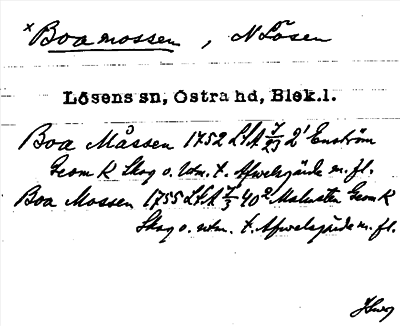 x Boa mossen, N Lösen
Lösens sn, Östra hd, Blek.l.
Boa Måssen 1752 LSA J/23 2' Enström
Geom K Skog o. utm. t. Afwelsgärde m. fl.
Boa Mossen 1755 LSA J/3 40² Malmsten Geom K
Skog o. utm. t. Afwelsgärde m. fl.